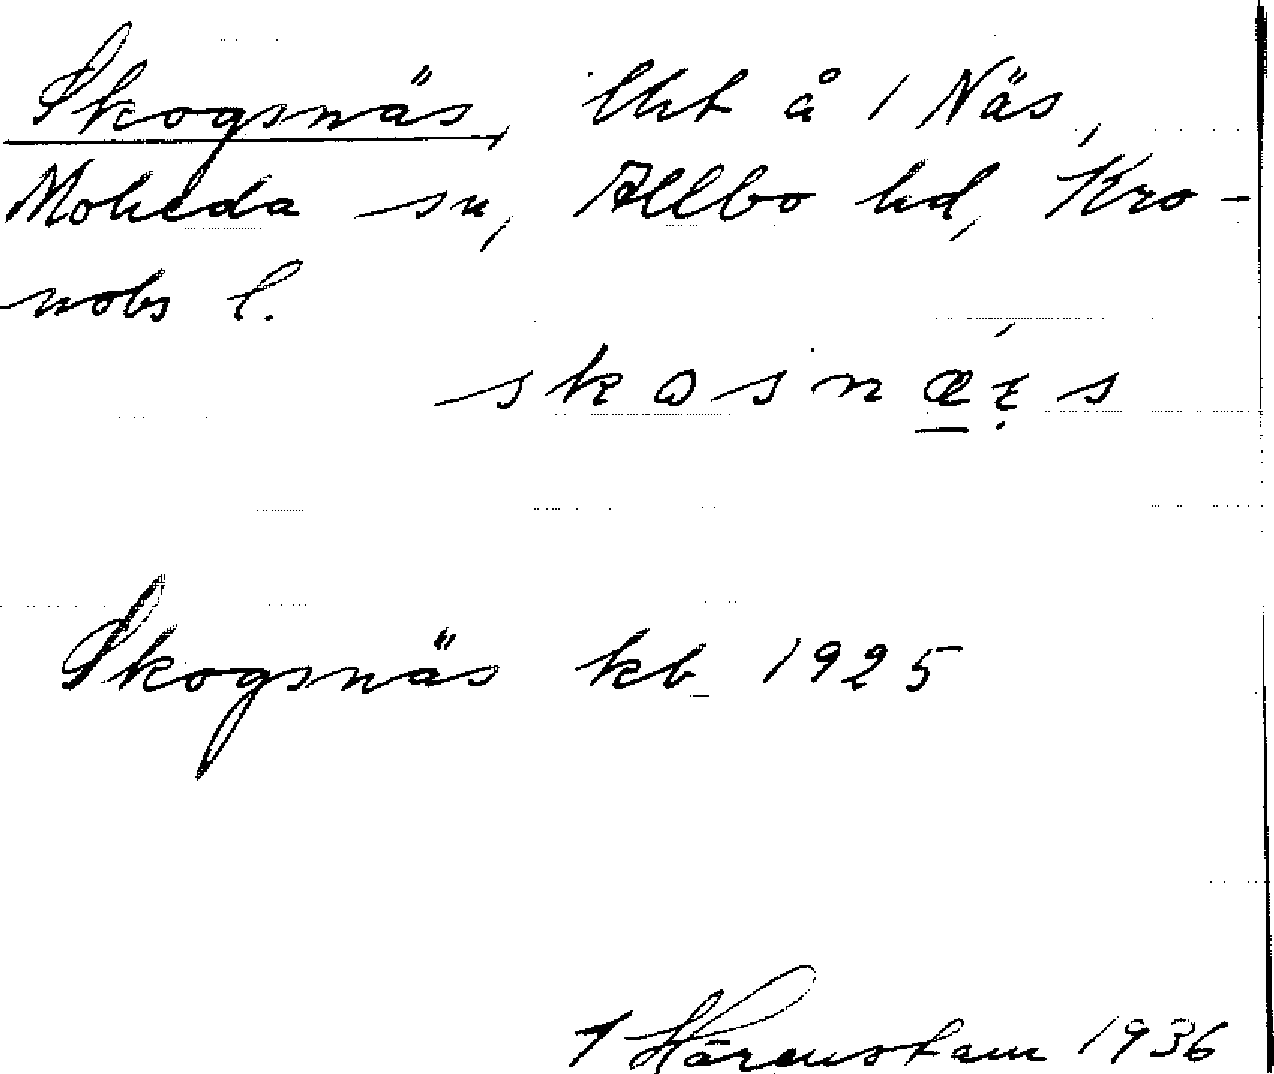 Skogsnäs, lht å 1 Näs,
Moheda sn, Allbo hd, Kro-
nobs l.
skosnæ̱ s
Skogsnäs kb 1925
Härenstam 1936